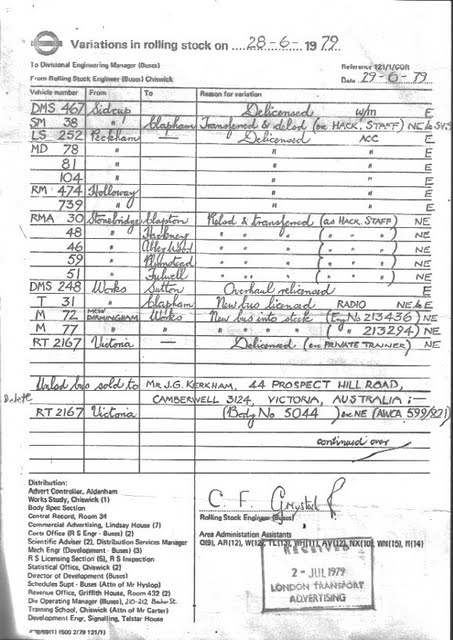 Variations in rolling stock on 28-6-1979
To Divisional Engineering Manager (Buses) Reference 121/1/COR
From Rolling Stock Engineer (Buses) Chiswick Date 29-6-79
Vehicle number From To Reason for variation
DMS 467 Sidcup — Delicensed w/m E
SM 38 " Clapham Transferred & delsd (ex HACK. STAFF) NE to SV.
LS 252 Peckham — Delicensed ACC E
MD 78 " " " E
81 " " " E
104 " " " E
RM 474 Holloway " " E
739 " " " E
RMA 30 Stonebridge Clapton Relsd & transferred (as HACK. STAFF) NE
48 " Hackney " " " ( " " " ) NE
46 " Abbey Wood " " " ( " " " ) NE
59 " Plumstead " " " ( " " " ) NE
51 " Fulwell " " " ( " " " ) NE
DMS 248 Works Sutton Overhaul relicensed E
T 31 " Clapham New bus licensed RADIO NE to E
M 72 MCW BIRMINGHAM Works New bus into stock (Eng No 213436) NE
M 77 " " " " " ( " " 213294) NE
RT 2167 Victoria — Delicensed (ex PRIVATE TRAINER) NE
Unlsd bus sold to MR J.G. KERKHAM, 44 PROSPECT HILL ROAD,
Delete CAMBERWELL 3124, VICTORIA, AUSTRALIA :—
RT 2167 Victoria (Body No 5044) ex NE (AWCA 599/821)
continued over
Distribution:
Advert Controller, Aldenham
Works Study, Chiswick (1)
Body Spec Section
Central Record, Room 34
Commercial Advertising, Lindsay House (7)
Costs Office (R S Engr - Buses) (2)
Scientific Adviser (2), Distribution Services Manager
Mech Engr (Development - Buses) (3)
R S Licensing Section (5), R S Inspection
Statistical Office, Chiswick (2)
Director of Development (Buses)
Schedules Supt - Buses (Attn of Mr Hyslop)
Revenue Office, Griffith House, Room 432 (2)
Dis Operating Manager (Buses), 210-212, Baker St.
Training School, Chiswick (Attn of Mr Carter)
Development Engr, Signalling, Telstar House
C. F.
Rolling Stock Engineer (Buses)
Area Administration Assistants
Q(9), AR(12), W(12), TL(13), WH(11), AV(12), NX(10), WN(15), H(14)
RECEIVED
2 - JUL 1979
LONDON TRANSPORT
ADVERTISING
1500 2/79 121/1)